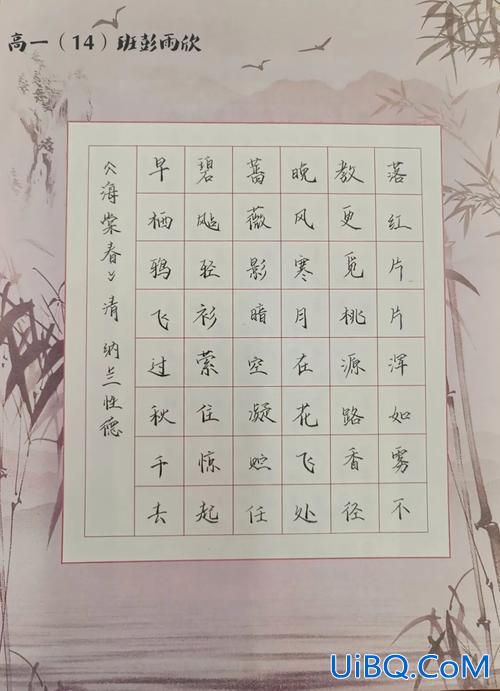 高一（14）班彭雨欣
落红片片浑如雾不
教更觅桃源路香径
晚风寒月在花飞处
蔷薇影暗空凝贮任
碧飐轻衫萦住惊起
早栖鸦飞过秋千去
《海棠春》清 纳兰性德
UiBQ.CoM